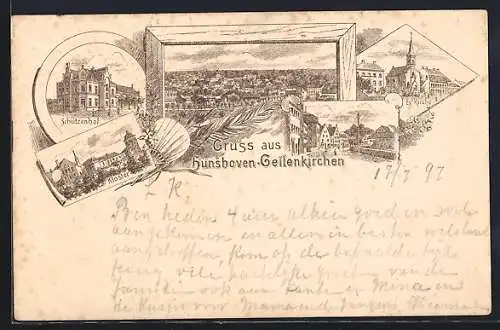 Schützenhof
Kloster
Gruss aus
Hünshoven-Geilenkirchen
17/7 97
L K
Ben heden 4 uur alhier goed en wel
aangekomen en allen in besten welstand
aangetroffen, kom op de bepaalde tijd
terug, vele hartelijke groeten van de
familie ook aan tante en Mina en
de kusjes voor Mama